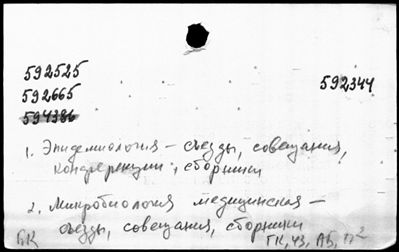 592525
592344
592665
594386
1. Эпидемиология – съезды, совещания,
конференции, сборники
2. Микробиология медицинская –
съезды, совещания, сборники
БК ГК, ЧЗ, АБ,